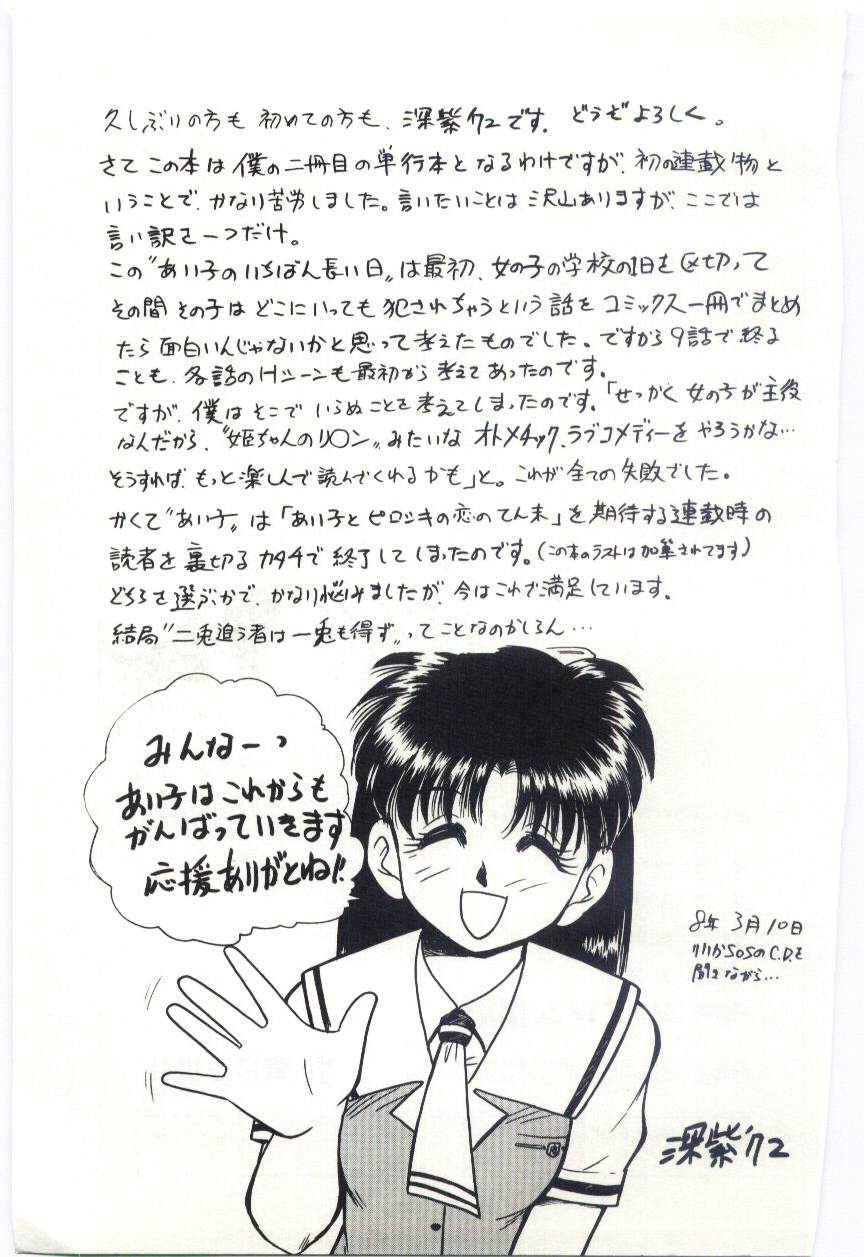 久しぶりの方も 初めての方も、深紫'72です。どうぞよろしく。
さて この本は 僕の二冊目の単行本となるわけですが、初の連載物と
いうことで、かなり苦労しました。言いたいことは 沢山ありますが、ここでは
言い訳を一つだけ。
この"あい子のいちばん長い日"は最初、女の子の学校の1日を区切って
その間 その子は どこにいっても 犯されちゃうという話を コミックス一冊でまとめ
たら 面白いんじゃないかと思って考えたものでした。ですから9話で終る
ことも、各話のHシーンも最初から考えてあったのです。
ですが、僕はそこで いらぬことを考えてしまったのです。「せっかく 女の子が主役
なんだから、"姫ちゃんのリ〇ン"みたいな オトメチック、ラブコメディーをやろうかな…
そうすれば、もっと楽しんで読んでくれるかも」と。これが全ての失敗でした。
かくて"あい子"は「あい子とピロシキの恋のてん末」を期待する連載時の
読者を裏切るカタチで終了してしまったのです。(この本のラストは加筆されてます)
どちらを選ぶかで、かなり悩みましたが、今はこれで満足しています。
結局"二兎追う者は一兎も得ず"ってことなのかしらん…
みんなーっ
あい子はこれからも
がんばっていきます
応援ありがとね!!
8年 3月10日
リリカSOSのC.D.を
聞きながら…
深紫'72